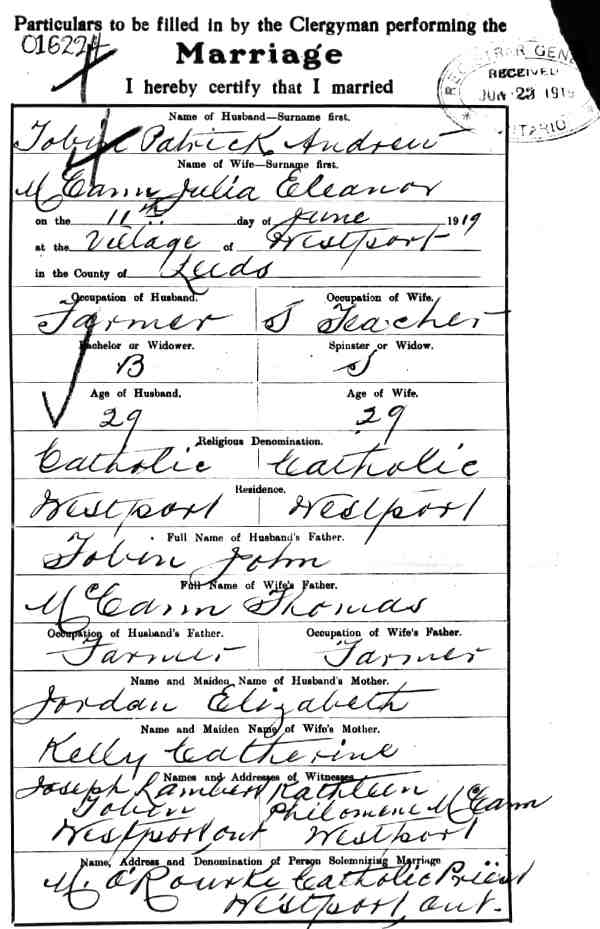 Particulars to be filled in by the Clergyman performing the
Marriage
I hereby certify that I married
REGISTRAR GENE
RECEIVED
JUN 23 1919
ONTARIO
Name of Husband—Surname first.
Tobin Patrick Andrew
Name of Wife—Surname first.
McCann Julia Eleanor
on the 11th day of June 1919
at the Village of Westport
in the County of Leeds
Occupation of Husband. Occupation of Wife.
Farmer S Teacher
Bachelor or Widower. Spinster or Widow.
B S
Age of Husband. Age of Wife.
29 29
Religious Denomination.
Catholic Catholic
Residence.
Westport Westport
Full Name of Husband's Father.
Tobin John
Full Name of Wife's Father.
McCann Thomas
Occupation of Husband's Father. Occupation of Wife's Father.
Farmer Farmer
Name and Maiden Name of Husband's Mother.
Jordan Elizabeth
Name and Maiden Name of Wife's Mother.
Kelly Catherine
Names and Addresses of Witnesses
Joseph Lambert Kathleen
Tobin Philomene McCann
Westport, Ont Westport
Name, Address and Denomination of Person Solemnizing Marriage
M. O'Rourke Catholic Priest
Westport, Ont.